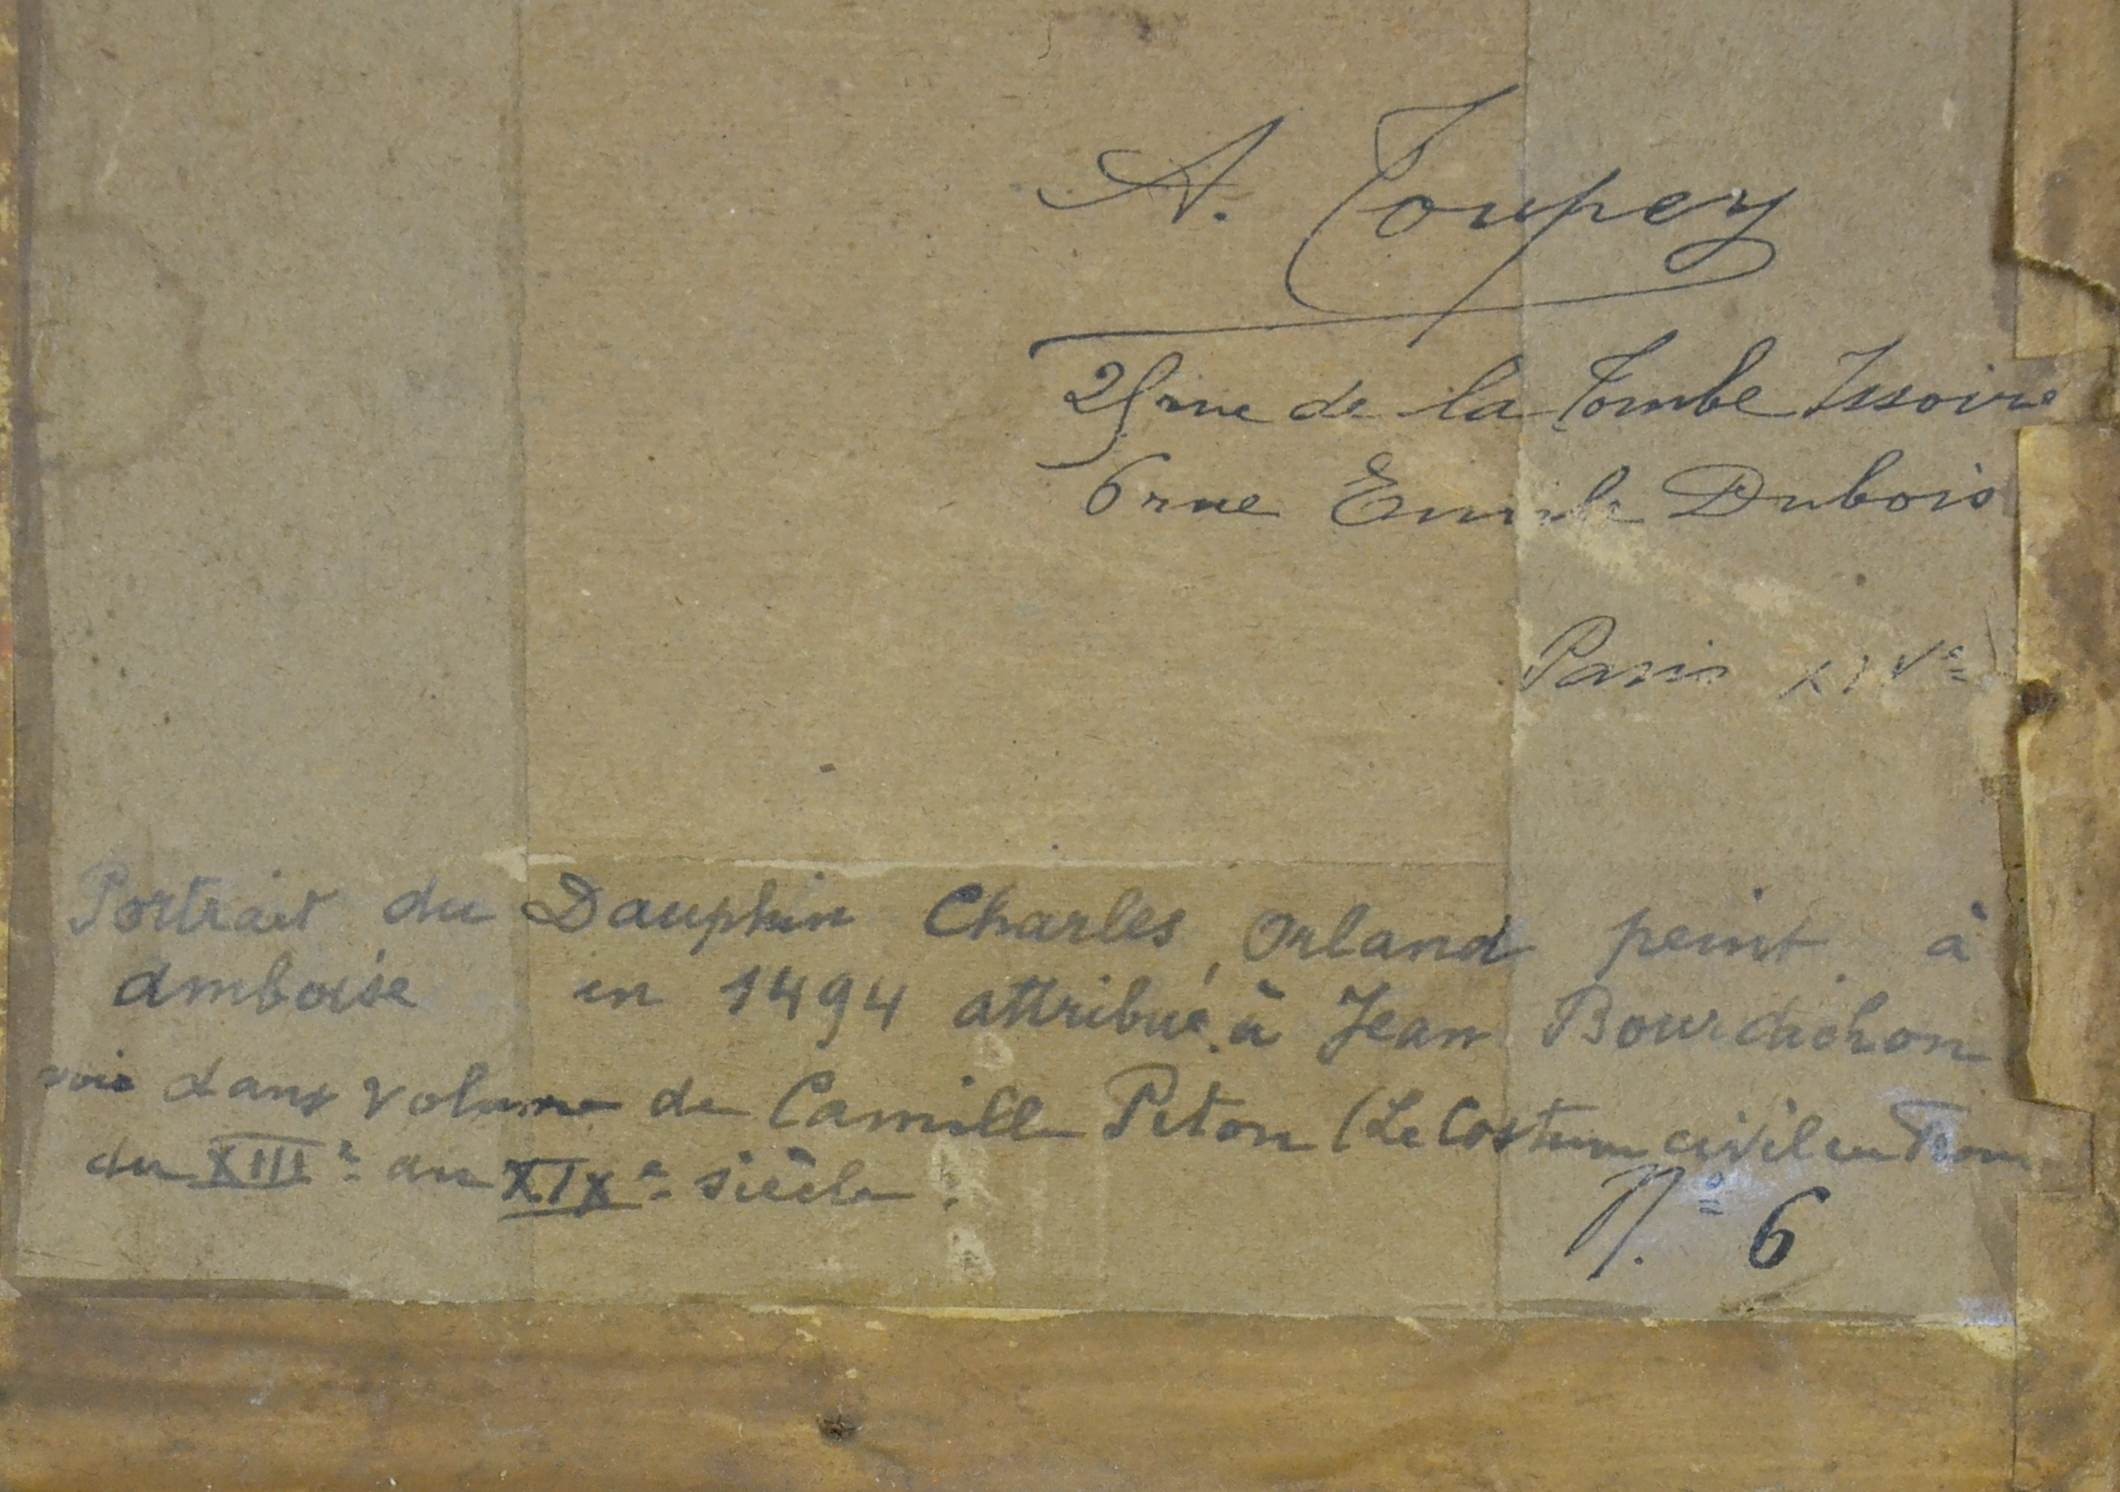 A. Toupey
25 rue de la Tombe Issoire
6 rue Emile Dubois
Paris XIVe
Portrait du Dauphin Charles, Orland peint à
amboise en 1494 attribué à Jean Bourdichon
voir dans volume de Camille Piton (Le Costume civil en
du XIIIe au XIXe siècle.
N.o 6